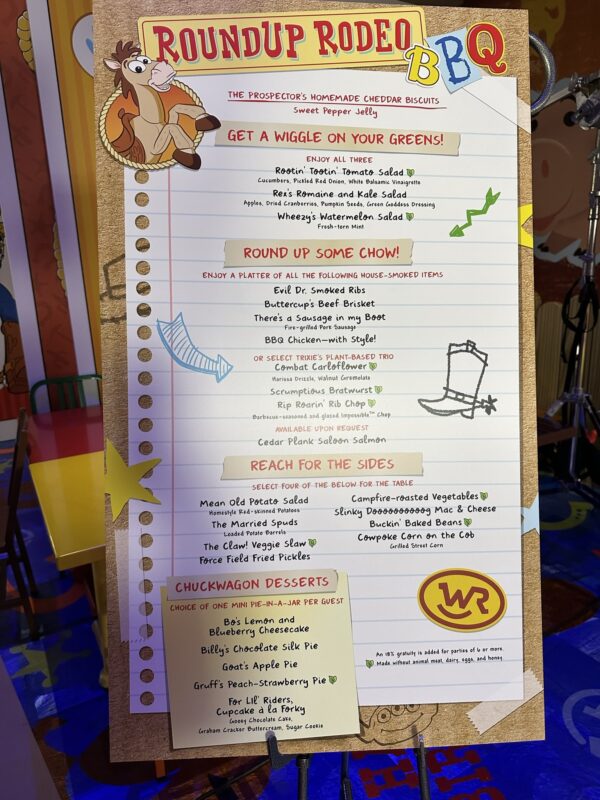 ROUNDUP RODEO
BBQ
THE PROSPECTOR'S HOMEMADE CHEDDAR BISCUITS
Sweet Pepper Jelly
GET A WIGGLE ON YOUR GREENS!
ENJOY ALL THREE
Rootin' Tootin' Tomato Salad
Cucumbers, Pickled Red Onion, White Balsamic Vinaigrette
Rex's Romaine and Kale Salad
Apples, Dried Cranberries, Pumpkin Seeds, Green Goddess Dressing
Wheezy's Watermelon Salad
Fresh-torn Mint
ROUND UP SOME CHOW!
ENJOY A PLATTER OF ALL THE FOLLOWING HOUSE-SMOKED ITEMS
Evil Dr. Smoked Ribs
Buttercup's Beef Brisket
There's a Sausage in my Boot
Fire-grilled Pork Sausage
BBQ Chicken—with Style!
OR SELECT TRIXIE'S PLANT-BASED TRIO
Combat Carloflower
Harissa Drizzle, Walnut Gremolata
Scrumptious Bratwurst
Rip Roarin' Rib Chop
Barbecue-seasoned and glazed Impossible™ Chop
AVAILABLE UPON REQUEST
Cedar Plank Saloon Salmon
REACH FOR THE SIDES
SELECT FOUR OF THE BELOW FOR THE TABLE
Mean Old Potato Salad
Homestyle Red-skinned Potatoes
The Married Spuds
Loaded Potato Barrels
The Claw! Veggie Slaw
Force Field Fried Pickles
Campfire-roasted Vegetables
Slinky Doooooooooog Mac & Cheese
Buckin' Baked Beans
Cowpoke Corn on the Cob
Grilled Street Corn
CHUCKWAGON DESSERTS
CHOICE OF ONE MINI PIE-IN-A-JAR PER GUEST
Bo's Lemon and
Blueberry Cheesecake
Billy's Chocolate Silk Pie
Goat's Apple Pie
Gruff's Peach-Strawberry Pie
For Lil' Riders,
Cupcake à la Forky
Gooey Chocolate Cake,
Graham Cracker Buttercream, Sugar Cookie
WR
An 18% gratuity is added for parties of 6 or more.
Made without animal meat, dairy, eggs, and honey